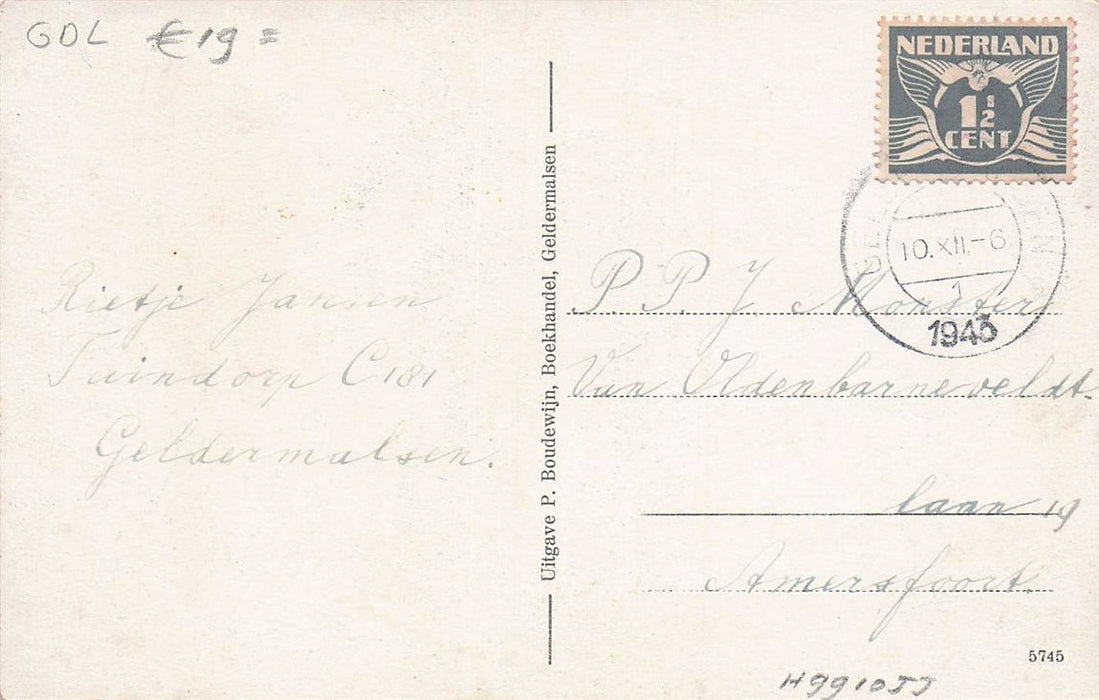 GDL €19=
NEDERLAND
1½
CENT
10.XII.-6
1
1943
Rietje Jansen
Tuindorp C181
Geldermalsen.
Uitgave P. Boudewijn, Boekhandel, Geldermalsen
P. P. J. Monster
Van Oldenbarneveldt-
laan 19
Amersfoort.
5745